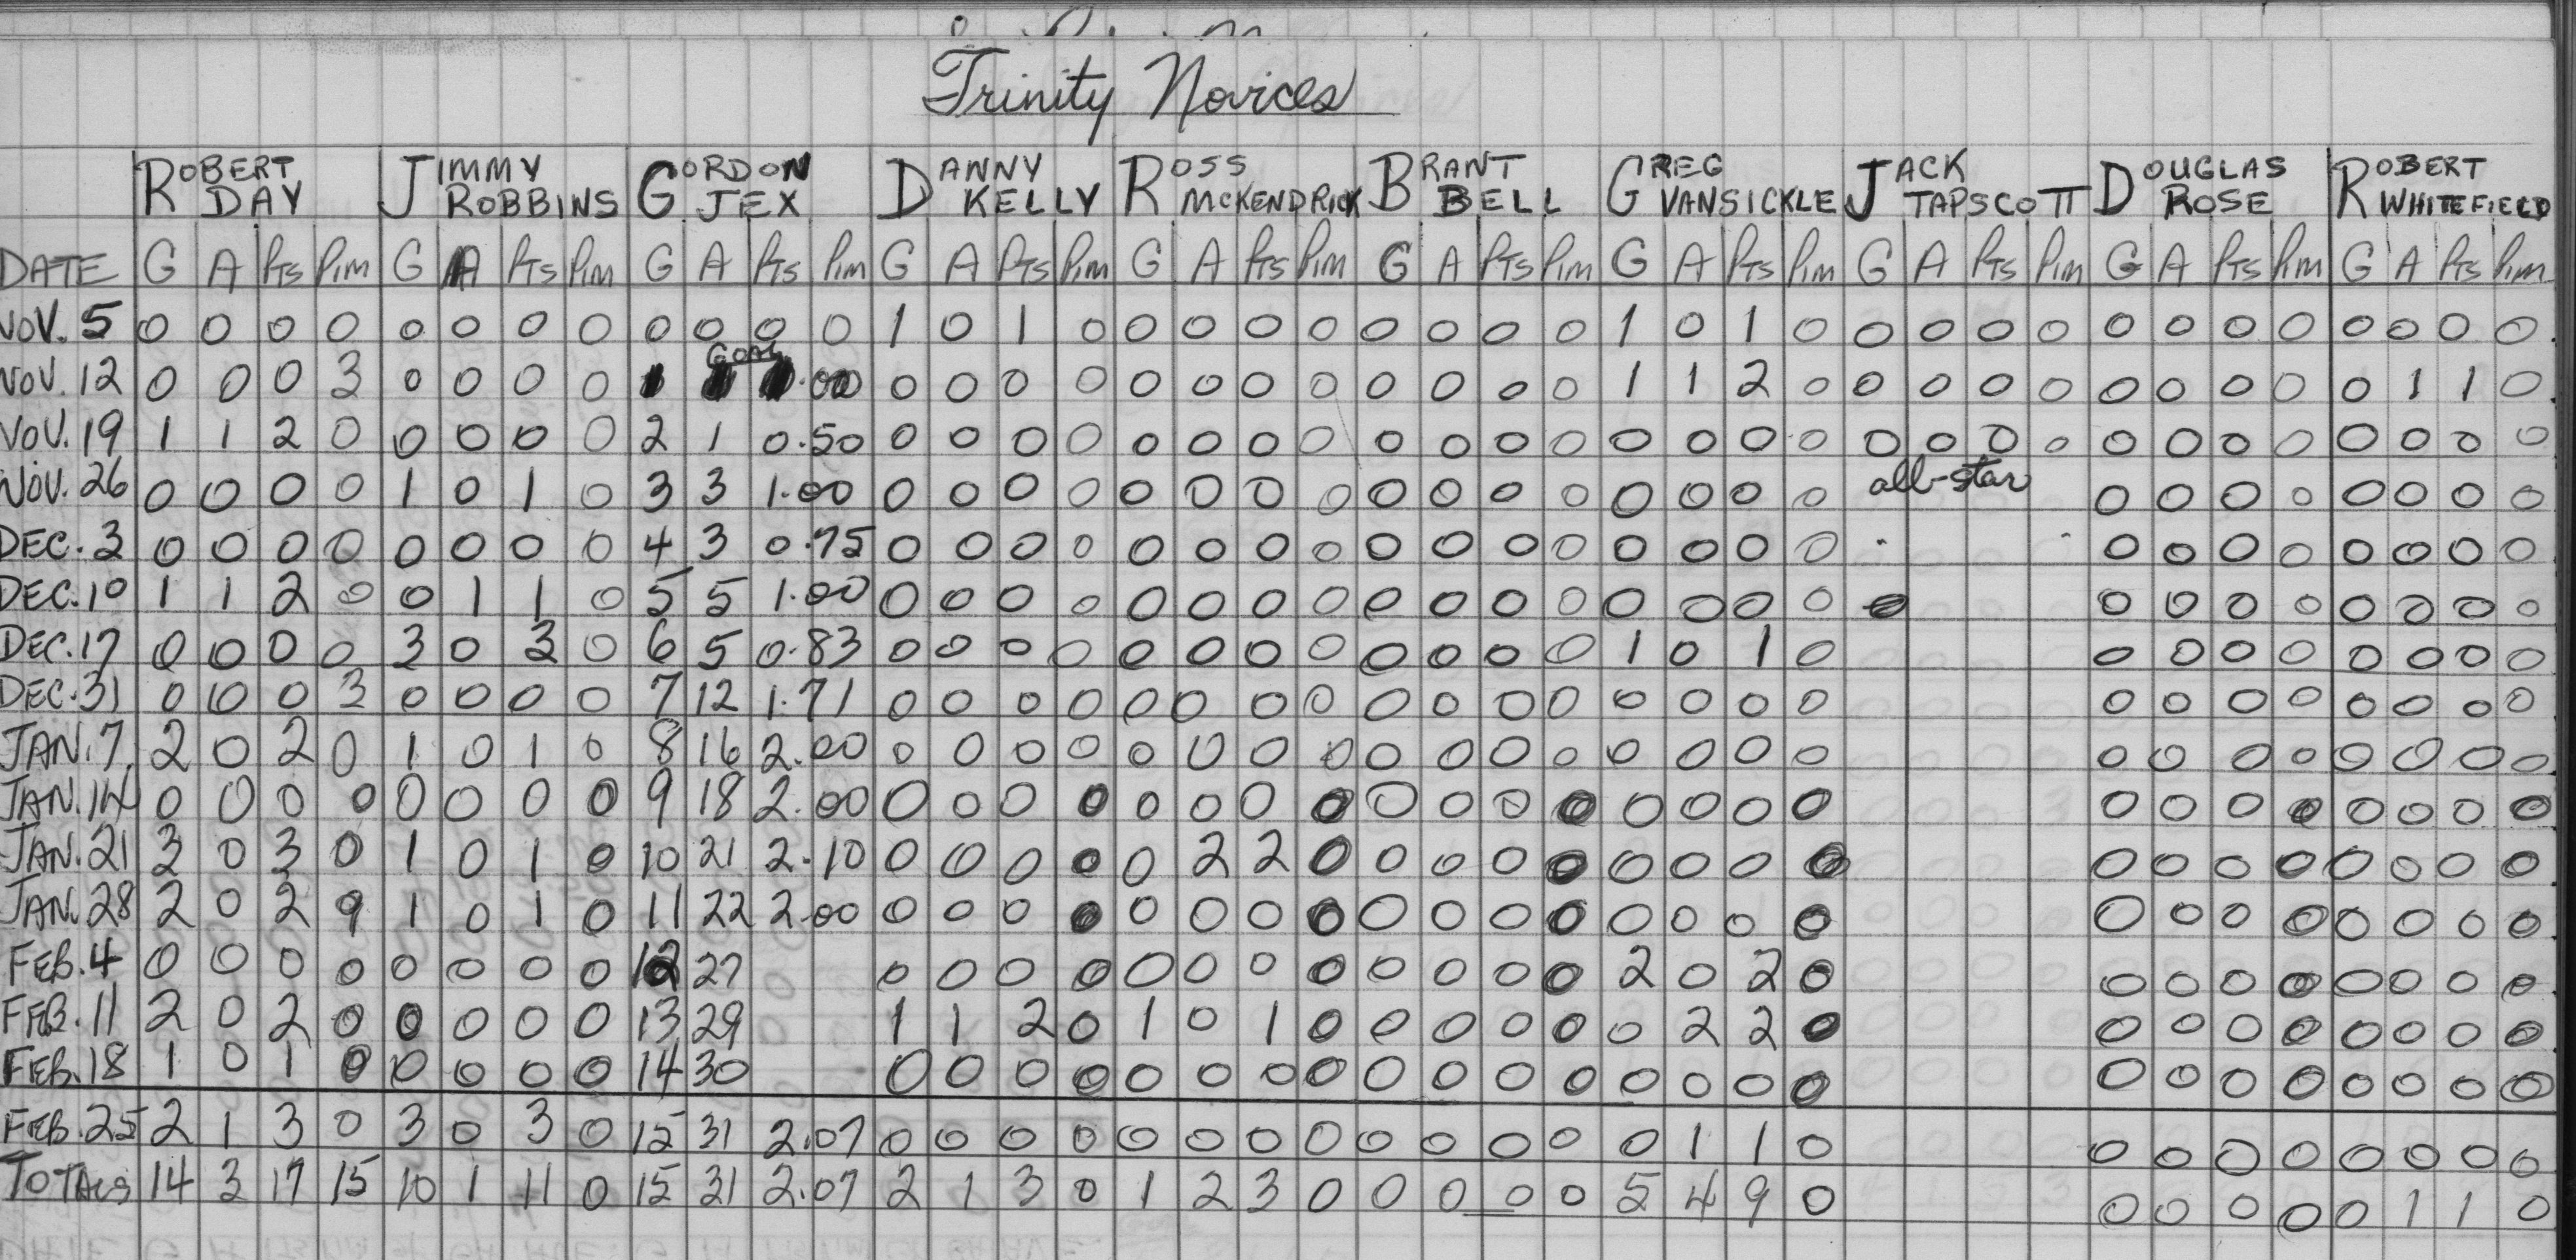 Trinity Novices
ROBERT DAY JIMMY ROBBINS GORDON JEX DANNY KELLY ROSS MCKENDRICK BRANT BELL GREG VANSICKLE JACK TAPSCOTT DOUGLAS ROSE ROBERT WHITEFIELD
DATE G A Pts Pim G A Pts Pim G A Pts Pim G A Pts Pim G A Pts Pim G A Pts Pim G A Pts Pim G A Pts Pim G A Pts Pim G A Pts Pim
NOV. 5 0 0 0 0 0 0 0 0 0 0 0 0 1 0 1 0 0 0 0 0 0 0 0 0 1 0 1 0 0 0 0 0 0 0 0 0 0 0 0 0
NOV. 12 0 0 0 3 0 0 0 0 .00 0 0 0 0 0 0 0 0 0 0 0 0 1 1 2 0 0 0 0 0 0 0 0 0 0 1 1 0
NOV. 19 1 1 2 0 0 0 0 0 2 1 0.50 0 0 0 0 0 0 0 0 0 0 0 0 0 0 0 0 0 0 0 0 0 0 0 0 0 0 0 0
NOV. 26 0 0 0 0 1 0 1 0 3 3 1.00 0 0 0 0 0 0 0 0 0 0 0 0 0 0 0 0 all-star 0 0 0 0 0 0 0 0
DEC. 3 0 0 0 0 0 0 0 0 4 3 0.75 0 0 0 0 0 0 0 0 0 0 0 0 0 0 0 0 0 0 0 0 0 0 0 0
DEC. 10 1 1 2 0 0 1 1 0 5 5 1.00 0 0 0 0 0 0 0 0 0 0 0 0 0 0 0 0 0 0 0 0 0 0 0 0
DEC. 17 0 0 0 0 3 0 3 0 6 5 0.83 0 0 0 0 0 0 0 0 0 0 0 0 1 0 1 0 0 0 0 0 0 0 0 0
DEC. 31 0 0 0 3 0 0 0 0 7 12 1.71 0 0 0 0 0 0 0 0 0 0 0 0 0 0 0 0 0 0 0 0 0 0 0 0
JAN. 7 2 0 2 0 1 0 1 0 8 16 2.00 0 0 0 0 0 0 0 0 0 0 0 0 0 0 0 0 0 0 0 0 0 0 0 0
JAN. 14 0 0 0 0 0 0 0 0 9 18 2.00 0 0 0 0 0 0 0 0 0 0 0 0 0 0 0 0 0 0 0 0 0 0 0 0
JAN. 21 3 0 3 0 1 0 1 0 10 21 2.10 0 0 0 0 0 2 2 0 0 0 0 0 0 0 0 0 0 0 0 0 0 0 0 0
JAN. 28 2 0 2 9 1 0 1 0 11 22 2.00 0 0 0 0 0 0 0 0 0 0 0 0 0 0 0 0 0 0 0 0 0 0 0 0
FEB. 4 0 0 0 0 0 0 0 0 12 27 0 0 0 0 0 0 0 0 0 0 0 0 2 0 2 0 0 0 0 0 0 0 0 0
FEB. 11 2 0 2 0 0 0 0 0 13 29 1 1 2 0 1 0 1 0 0 0 0 0 0 2 2 0 0 0 0 0 0 0 0 0
FEB. 18 1 0 1 0 0 0 0 0 14 30 0 0 0 0 0 0 0 0 0 0 0 0 0 0 0 0 0 0 0 0 0 0 0 0
FEB. 25 2 1 3 0 3 0 3 0 15 31 2.07 0 0 0 0 0 0 0 0 0 0 0 0 0 1 1 0 0 0 0 0 0 0 0 0
TOTALS 14 3 17 15 10 1 11 0 15 31 2.07 2 1 3 0 1 2 3 0 0 0 0 0 5 4 9 0 0 0 0 0 0 1 1 0